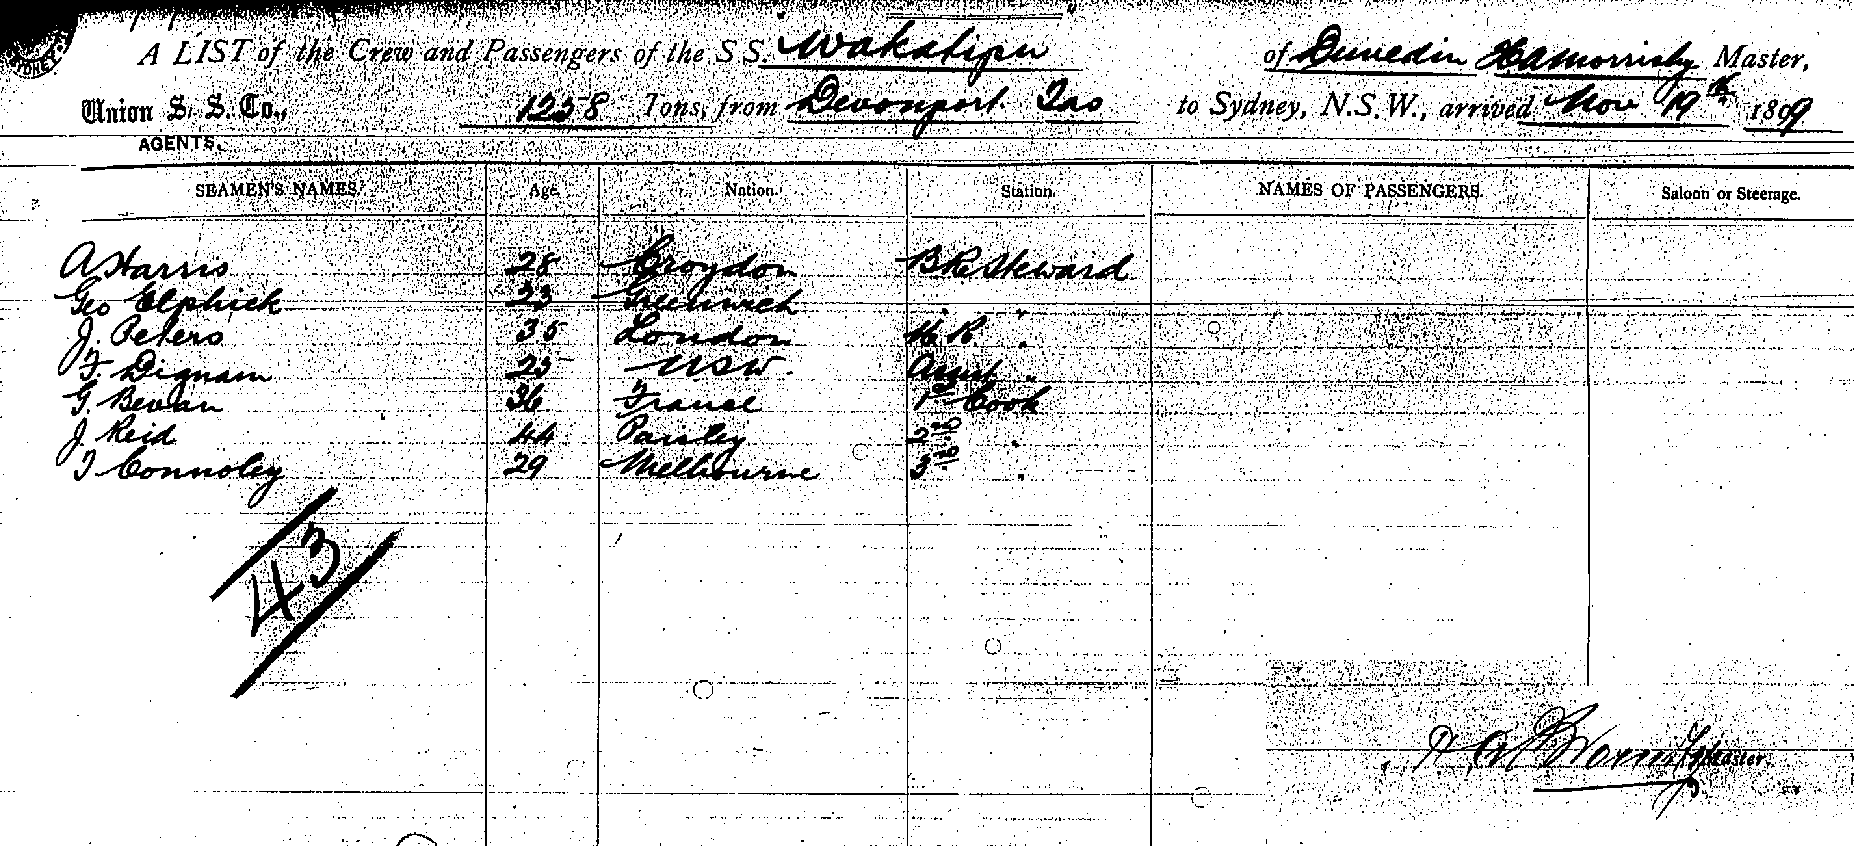 SYDNEY.
A LIST of the Crew and Passengers of the S S Wakatipu of Dunedin Master,
Union S. S. Co., 1258 Tons, from Devonport Tas to Sydney, N.S.W., arrived Nov 19th 1889
AGENTS.
SEAMEN'S NAMES. Age. Nation. Station. NAMES OF PASSENGERS. Saloon or Steerage.
A Harris 28 Croydon Steward
Geo Elphick 23 Greenwich "
J. Peters 35 London "
F Dignam 25 NSW. Asust "
G. Bevan 36 France 1st Cook
J. Reid 44 Paisley 2nd "
T Connoley 29 Melbourne 3rd "
43
Master.